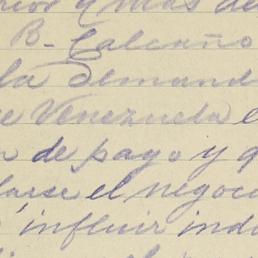 y más de
B- Calcaño
la demand
e Venezuela e
de pago y q
larse el negoc
influir ind